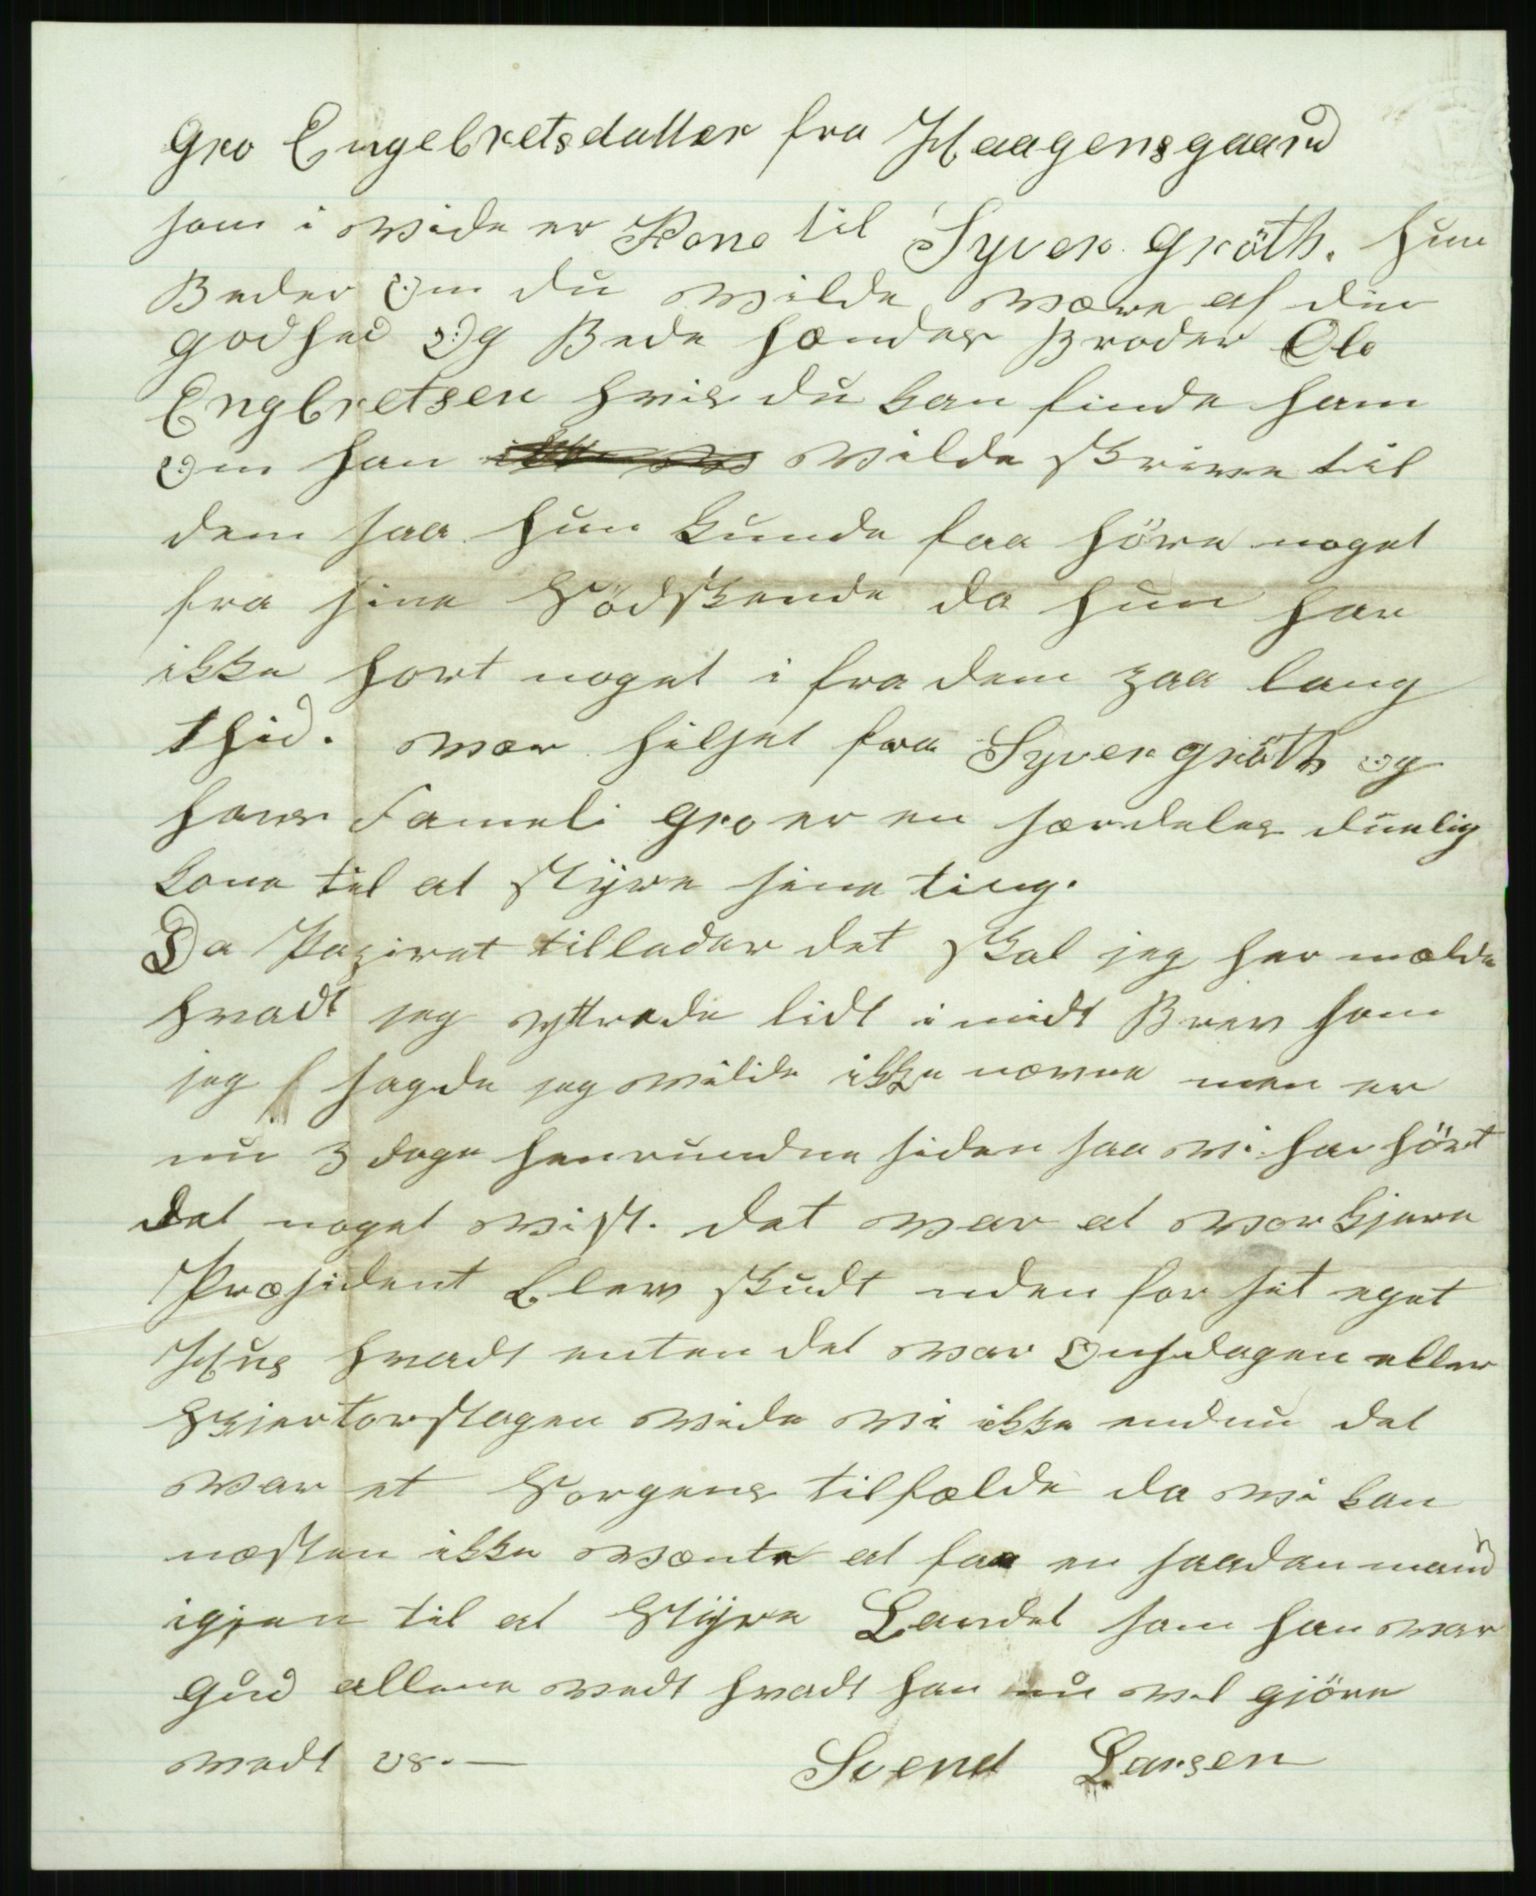 Gro Engebretsdatter fra Haagensgaard
som i wide er Kone til Syver Gröth. hun
Beder Om du wilde være af din
godhed Og Bede hendes Broder Ole
Engbretsen hvis du kan finde ham
Om han wilde skrive til
dem saa hun kunde faa höre noget
fra sine Södskende da hun har
ikke hort noget i fra dem saa lang
thid. wær hilset fra Syver gröth og
hans Fameli gro er en særdeles duelig
kone til at styre sine ting.
Da Papiret tillader det skal jeg her mælde
hvadt jeg yttrede lidt i midt Brev som
jeg sagde jeg wilde ikke nævne men er
nu 3 dage henrundne siden saa wi har hört
det noget wist. det war at wor kjære
Præsident blew skudt uden for sit eget
Hus hvadt enten det war Onsdagen eller
Skjertorstagen wide wi ikke endnu det
war et Sorgens tilfælde da wi kan
næsten ikke wænte at faa en saadan mand
igjen til at Styre Landet som han war
Gud allene wedt hvadt han nu wil gjöre
wedt os.— Svend Larsen